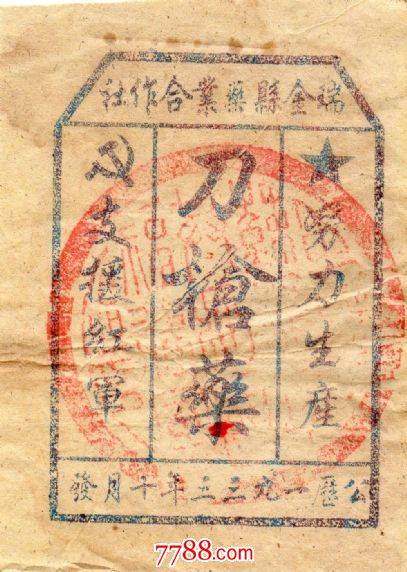 瑞金縣藥業合作社
勞力生產
刀槍藥
支援紅軍
公歷一九三三年十月發
7788.com